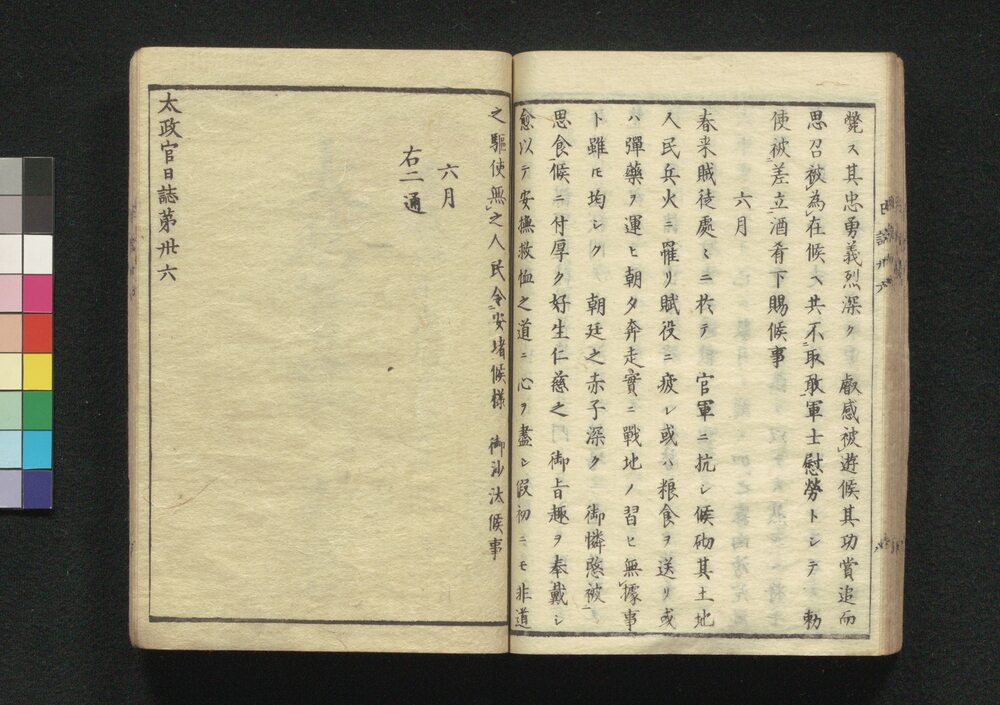 斃ス其忠勇義烈深ク　叡感被遊候其功賞追而
思召被為在候ヘ共不取敢軍士慰勞トシテ　勅
使被差立酒肴下賜候事
六月
春来賊徒處々ニ於テ　官軍ニ抗シ候砌其土地
人民兵火ニ罹リ賦役ニ疲レ或ハ粮食ヲ送リ或
ハ彈藥ヲ運ヒ朝夕奔走實ニ戰地ノ習ヒ無據事
ト雖ㇳモ均シク　朝廷之赤子深ク　御憐愍被
思食候ニ付厚ク好生仁慈之　御旨趣ヲ奉戴シ
愈以テ安撫救恤之道ニ心ヲ盡シ假初ニモ非道
之驅使無之人民令安堵候様　御沙汰候事
六月
右二通
太政官日誌第卅六